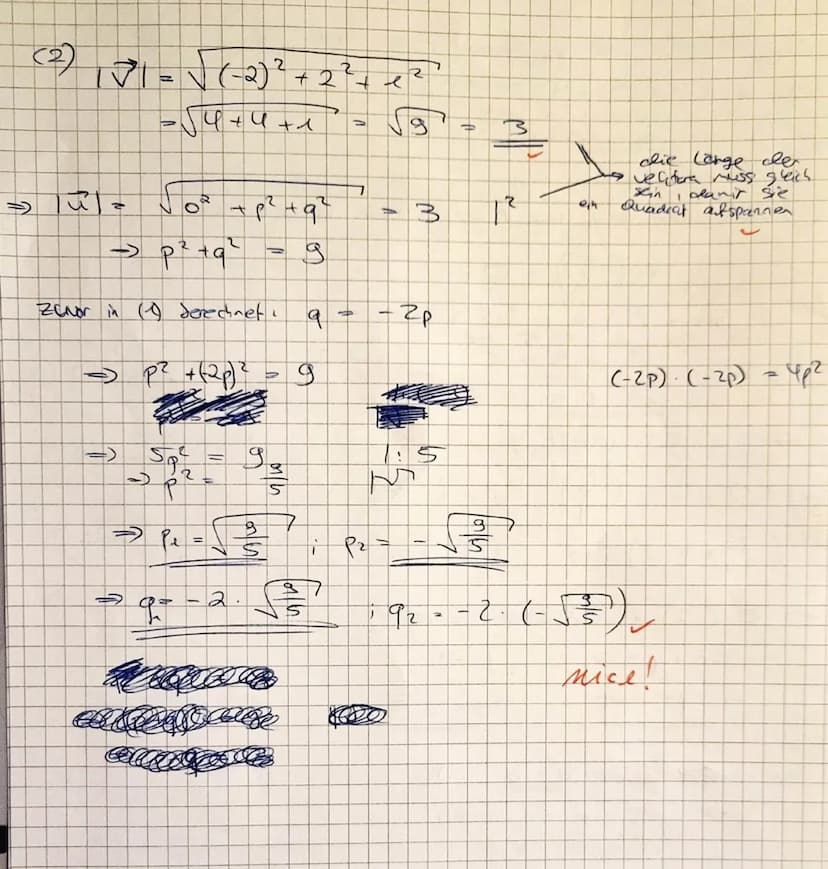 (2) |v⃗| = √((-2)² + 2² + 1²)
= √(4+4+1) = √9 = 3
die Länge der
Vektoren muss gleich
sein, damit sie
ein Quadrat aufspannen
⇒ |u⃗| = √(0² + p² + q²) = 3 |²
→ p² + q² = 9
zuvor in (1) berechnet: q = -2p
⇒ p² + (-2p)² = 9 (-2p) · (-2p) = 4p²
⇒ 5p² = 9 |:5
→ p² = 9/5 |√
⇒ p₁ = √(9/5) ; p₂ = -√(9/5)
⇒ q₁ = -2 · √(9/5) ; q₂ = -2 · (-√(9/5))
nice!